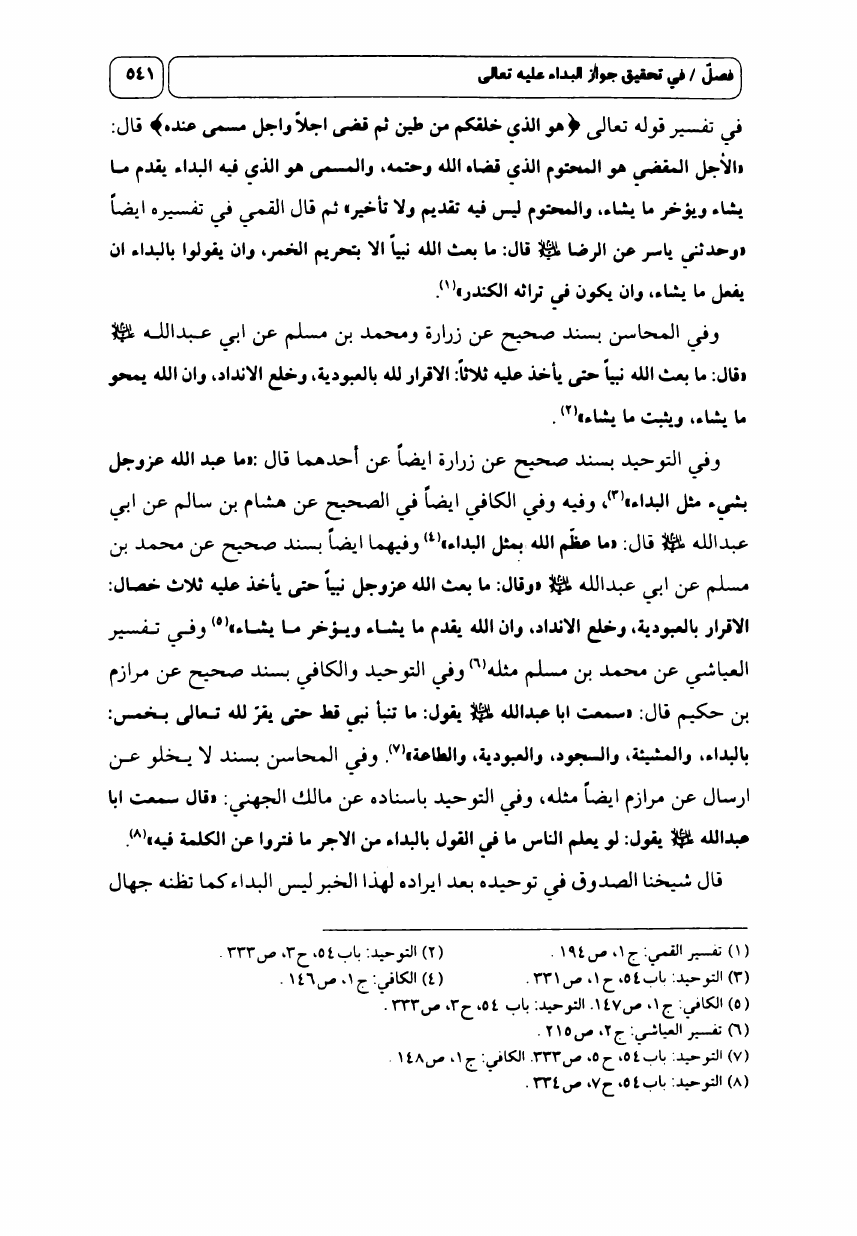 فصلّ / في تحقيق جواز البداء عليه تعالى
٥٤١
في تفسير قوله تعالى ﴿هو الذي خلقكم من طين ثم قضى اجلاً واجل مسمى عنده﴾ قال:
«الأجل المقضي هو المحتوم الذي قضاه الله وحتمه، والمسمى هو الذي فيه البداء يقدم مـا
يشاء ويؤخر ما يشاء، والمحتوم ليس فيه تقديم ولا تأخير» ثم قال القمي في تفسيره ايضاً
«وحدثني ياسر عن الرضا عليه السلام قال: ما بعث الله نبياً الا بتحريم الخمر، وان يقولوا بالبداء ان
يفعل ما يشاء، وان يكون في تراثه الكندر»(١).
وفي المحاسن بسند صحيح عن زرارة ومحمد بن مسلم عن ابي عـبداللـه عليه السلام
«قال: ما بعث الله نبياً حتى يأخذ عليه ثلاثاً: الاقرار لله بالعبودية، وخلع الانداد، وان الله يمحو
ما يشاء، ويثبت ما يشاء»(٢).
وفي التوحيد بسند صحيح عن زرارة ايضاً عن أحدهما قال :«ما عبد الله عزوجل
بشيء مثل البداء»(٣)، وفيه وفي الكافي ايضاً في الصحيح عن هشام بن سالم عن ابي
عبدالله عليه السلام قال: «ما عظّم الله بمثل البداء»(٤) وفيهما ايضاً بسند صحيح عن محمد بن
مسلم عن ابي عبدالله عليه السلام «وقال: ما بعث الله عزوجل نبياً حتى يأخذ عليه ثلاث خصال:
الاقرار بالعبودية، وخلع الانداد، وان الله يقدم ما يشـاء ويـؤخر مـا يشـاء»(٥) وفـي تـفسير
العياشي عن محمد بن مسلم مثله(٦) وفي التوحيد والكافي بسند صحيح عن مرازم
بن حكيم قال: «سمعت ابا عبدالله عليه السلام يقول: ما تنبأ نبي قط حتى يقرّ لله تـعالى بـخمس:
بالبداء، والمشيئة، والسجود، والعبودية، والطاعة»(٧). وفي المحاسن بسند لا يـخلو عـن
ارسال عن مرازم ايضاً مثله، وفي التوحيد باسناده عن مالك الجهني: «قال سمعت ابا
عبدالله عليه السلام يقول: لو يعلم الناس ما في القول بالبداء من الاجر ما فتروا عن الكلمة فيه»(٨).
قال شيخنا الصدوق في توحيده بعد ايراده لهذا الخبر ليس البداء كما تظنه جهال
(١) تفسير القمي: ج١، ص١٩٤ .
(٢) التوحيد: باب٥٤، ح٣، ص٣٣٣ .
(٣) التوحيد: باب٥٤، ح١، ص٣٣١ .
(٤) الكافي: ج١، ص١٤٦ .
(٥) الكافي: ج١، ص١٤٧. التوحيد: باب ٥٤، ح٣، ص٣٣٣ .
(٦) تفسير العياشي: ج٢، ص٢١٥ .
(٧) التوحيد: باب٥٤، ح٥، ص٣٣٣. الكافي: ج١، ص١٤٨ .
(٨) التوحيد: باب٥٤، ح٧، ص٣٣٤ .